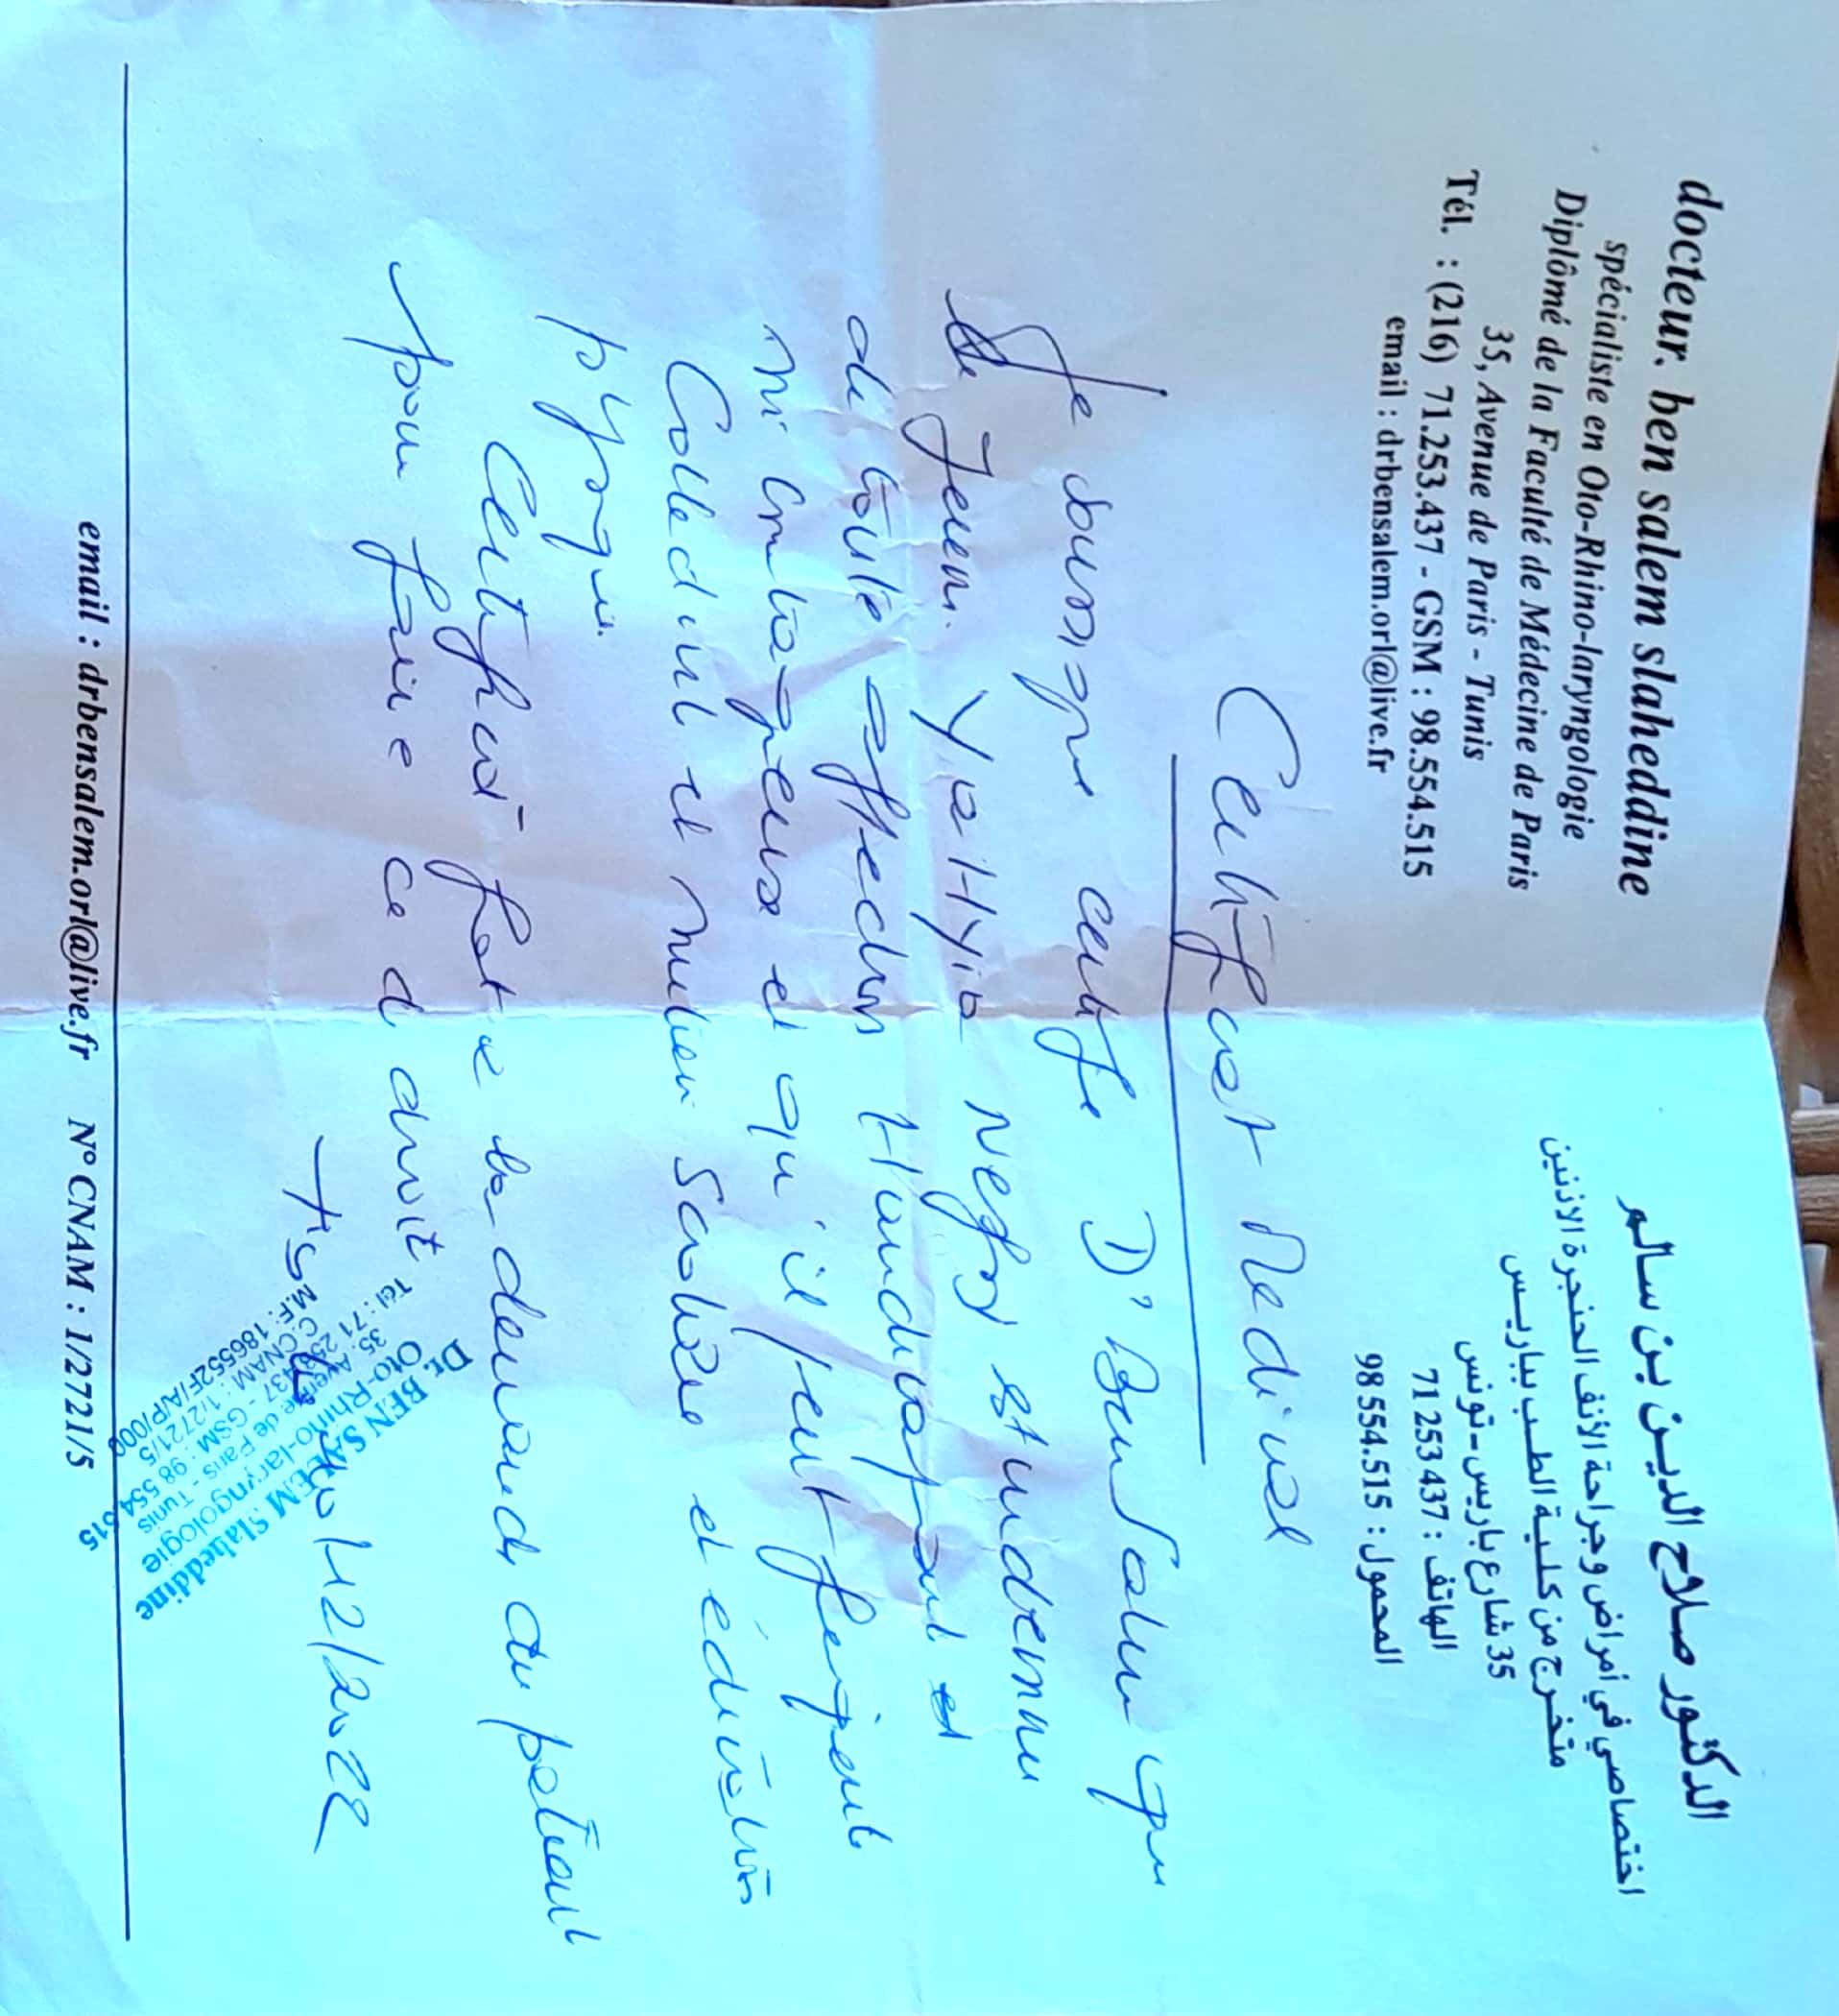 docteur. ben salem slaheddine
spécialiste en Oto-Rhino-laryngologie
Diplômé de la Faculté de Médecine de Paris
35, Avenue de Paris - Tunis
Tél. : (216) 71.253.437 - GSM : 98.554.515
email : drbensalem.orl@live.fr
الدكتور صلاح الدين بن سالم
اختصاصي في أمراض وجراحة الأنف الحنجرة الاذنين
متخرج من كلية الطب بباريس
35 شارع باريس - تونس
الهاتف : 71 253 437
المحمول : 98 554.515
Certificat Medical
Je soussigne certifie Dr Ben Salem que
le Jeune YaHyia Negzi est indemne
de toute affection Handicapant et
ni contagieuse et qu'il peut
Collectivité et milieu Scolaire et éducation
physique.
Certificat fait a la demande du patient
pour faire ce d droit
12/2022
Dr. BEN SALEM Slaheddine
Oto-Rhino-laryngologie
35, Avenue de Paris - Tunis
Tél : 71 253 437 - GSM : 98 554 515
C.CNAM : 1/2721/5
M.F: 186552F/A/P/000
email : drbensalem.orl@live.fr N° CNAM : 1/2721/5